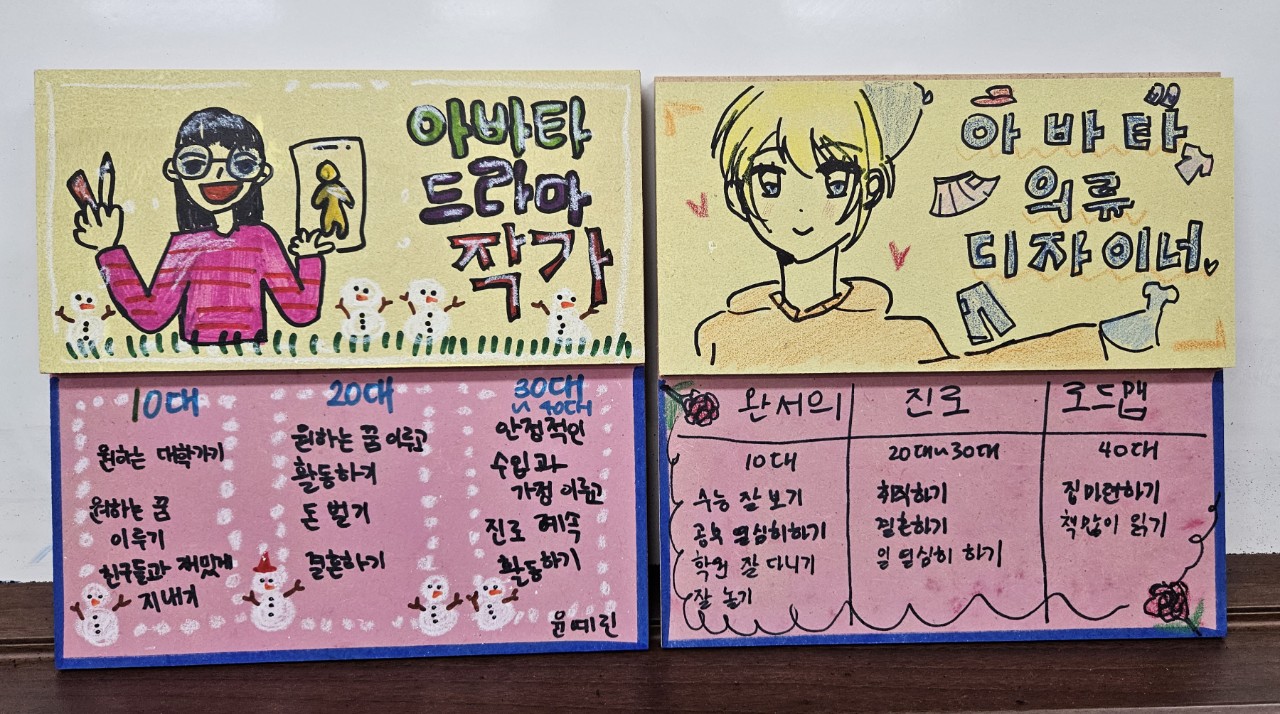 아바타
드라마
작가
10대
원하는 대학가기
원하는 꿈
이루기
친구들과 재밌게
지내기
20대
원하는 꿈 이루고
활동하기
돈 벌기
결혼하기
30대
~ 40대
안정적인
수입과
가정 이루고
진로 계속
활동하기
윤예린
아바타
의류
디자이너
완서의 진로 로드맵
10대
수능 잘 보기
공부 열심히하기
학원 잘 다니기
잘 놀기
20대~30대
취직하기
결혼하기
일 열심히 하기
40대
집마련하기
책많이 읽기